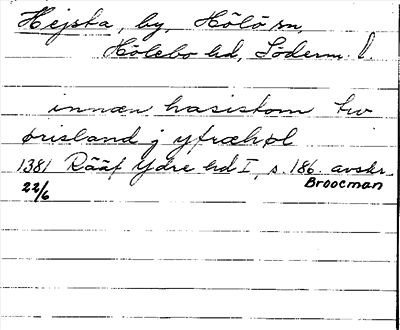 Hejsta, by, Hölö sn,
Hölebo hd, Söderm. l.
innæn hasistom tw
ørisland j yfræhøl
1381 Rääf Ydre hd I, s. 186. avskr.
22/6 Broocman